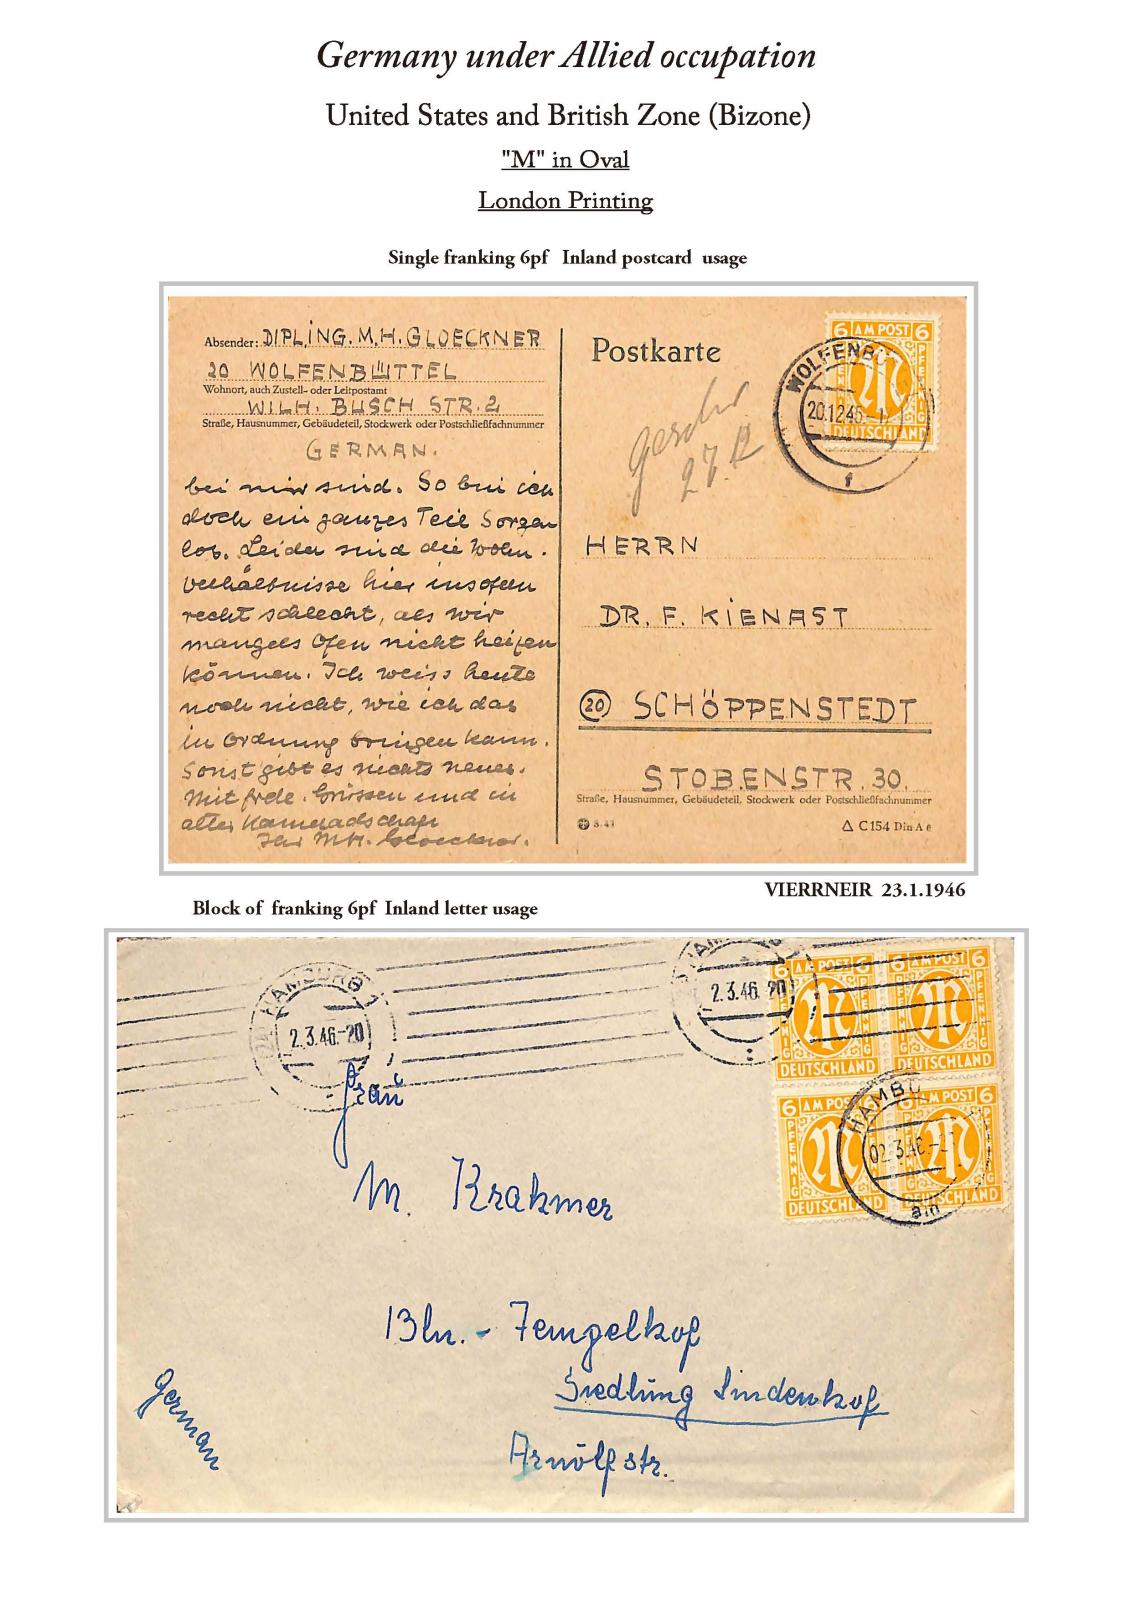 Germany under Allied occupation
United States and British Zone (Bizone)
"M" in Oval
London Printing
Single franking 6pf Inland postcard usage
Absender: DIPL.ING. M.H. GLOECKNER
20 WOLFENBÜTTEL
Wohnort, auch Zustell- oder Leitpostamt
WILH. BUSCH STR. 2
Straße, Hausnummer, Gebäudeteil, Stockwerk oder Postschließfachnummer
GERMAN.
bei mir sind. So bin ich
doch ein ganzes Teil Sorgen
los. Leider sind die Wohn-
verhältnisse hier insofern
recht schlecht, als wir
mangels Ofen nicht heizen
können. Ich weiss heute
noch nicht, wie ich das
in Ordnung bringen kann.
Sonst gibt es nichts neues.
Mit frdl. Grüssen und in
alter Kameradschaft
Ihr MH. Gloeckner.
Postkarte
6 AM POST 6
DEUTSCHLAND
WOLFENBÜ
20.12.45
f
27. 12
HERRN
DR. F. KIENAST
20 SCHÖPPENSTEDT
STOBENSTR. 30.
Straße, Hausnummer, Gebäudeteil, Stockwerk oder Postschließfachnummer
C154 Din A 6
VIERRNEIR 23.1.1946
Block of franking 6pf Inland letter usage
HAMBURG 1
2.3.46.-20
HAM
2.3.46. 20
6 AM POST 6
PFENNIG
DEUTSCHLAND
6 AM POST 6
PFENNIG
DEUTSCHLAND
6 AM POST 6
PFENNIG
DEUTSCHLAND
AM POST 6
DEUTSCHLAND
HAMBU
02.3.46.-
Frau
M. Krahmer
Bln. - Tempelhof
Siedlung Lindenhof
Arnulfstr.
German